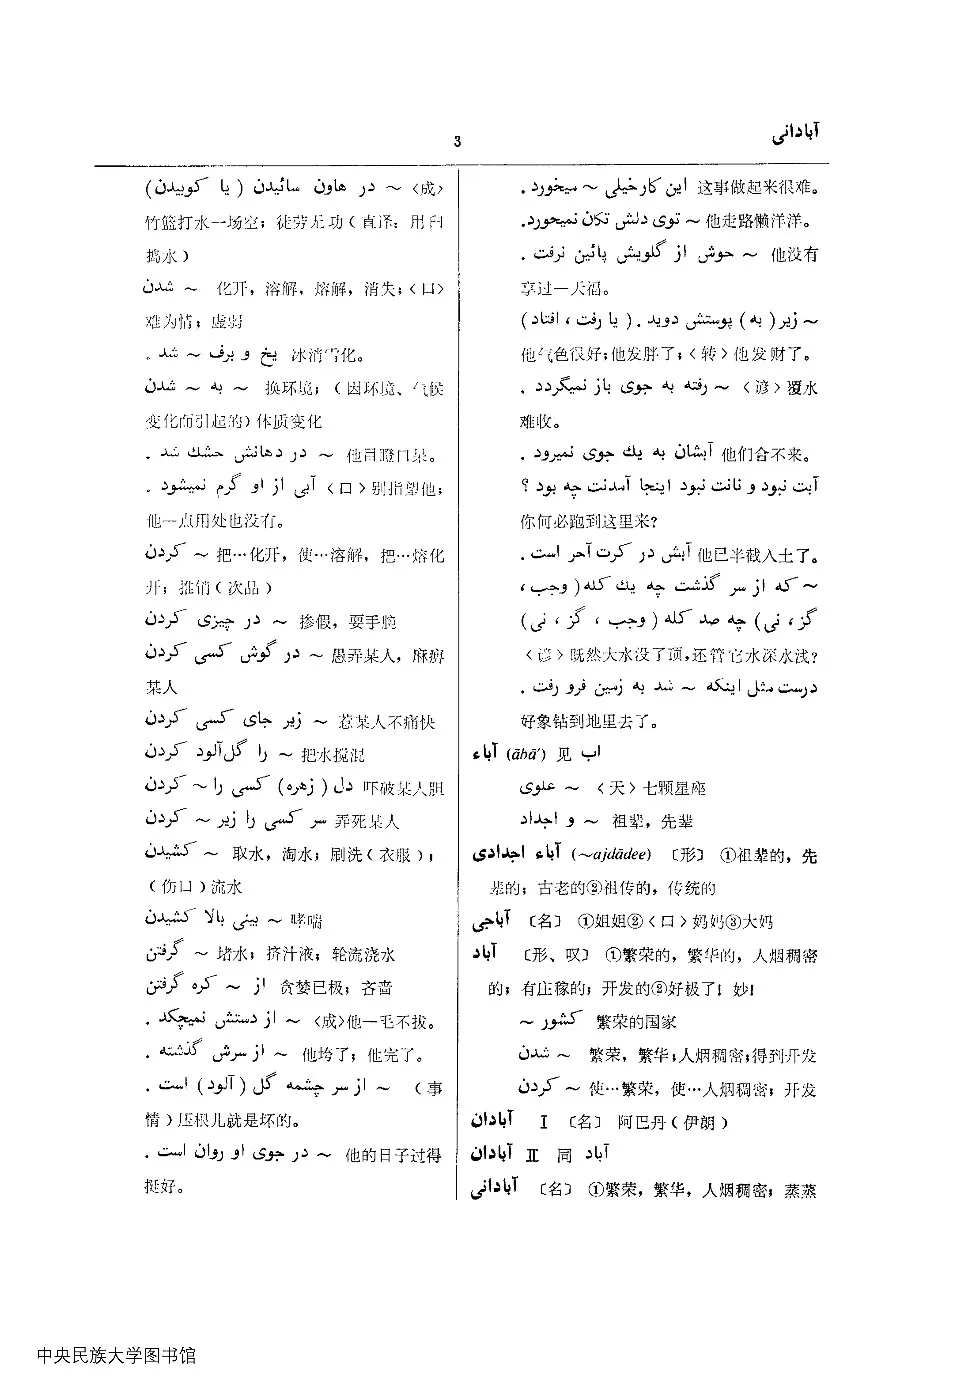 آبادانی
3
در هاون سائیدن ( یا کوبیدن) ~ 〈成〉
竹篮打水一场空；徒劳无功（直译：用臼
捣水）
~ شدن 化开，溶解，熔解，消失；〈口〉
难为情；虚弱
یخ و برف ~ شد . 冰消雪化。
~ به ~ شدن 换环境；（因环境、气候
变化而引起的）体质变化
~ در دهانش خشك شد . 他目瞪口呆。
آبی از او گرم نمیشود . 〈口〉别指望他；
他一点用处也没有。
~ کردن 把…化开，使…溶解，把…熔化
开；推销（次品）
~ در چیزی کردن 掺假，耍手腕
~ در گوش کسی کردن 愚弄某人，麻痹
某人
~ زیر جای کسی کردن 惹某人不痛快
~ را گل‌آلود کردن 把水搅混
دل ( زهره) کسی را ~ کردن 吓破某人胆
سر کسی را زیر ~ کردن 弄死某人
~ کشیدن 取水，淘水；刷洗（衣服）；
（伤口）流水
~ بینی بالا کشیدن 哮喘
~ گرفتن 堵水；挤汁液；轮流浇水
از ~ کره گرفتن 贪婪已极；吝啬
~ از دستش نمیچکد . 〈成〉他一毛不拔。
~ از سرش گذشته . 他垮了；他完了。
~ از سر چشمه گل ( آلود) است . （事
情）压根儿就是坏的。
~ در جوی او روان است . 他的日子过得
挺好。
این کار خیلی ~ میخورد . 这事做起来很难。
~ توی دلش تکان نمیخورد . 他走路懒洋洋。
~ خوش از گلویش پائین نرفت . 他没有
享过一天福。
~ زیر ( به ) پوستش دوید . ( یا رفت ، افتاد )
他气色很好；他发胖了；〈转〉他发财了。
~ رفته به جوی باز نمیگردد . 〈谚〉覆水
难收。
آبشان به یك جوی نمیرود . 他们合不来。
آبت نبود و نانت نبود اینجا آمدنت چه بود ؟
你何必跑到这里来？
آبش در کرت آخر است . 他已半截入土了。
~ که از سر گذشت چه یك کله ( وجب ،
گز ، نی ) چه صد کله ( وجب ، گز ، نی )
〈谚〉既然大水没了顶，还管它水深水浅？
درست مثل اینکه ~ شد به زمین فرو رفت .
好象钻到地里去了。
آباء (ābā') 见 اب
~ علوی 〈天〉七颗星座
~ و اجداد 祖辈，先辈
آباء اجدادی (~ajdādee) 〔形〕 ①祖辈的，先
辈的；古老的②祖传的，传统的
آباجی 〔名〕 ①姐姐②〈口〉妈妈③大妈
آباد 〔形、叹〕 ①繁荣的，繁华的，人烟稠密
的；有庄稼的；开发的②好极了！妙！
کشور ~ 繁荣的国家
~ شدن 繁荣，繁华；人烟稠密；得到开发
~ کردن 使…繁荣，使…人烟稠密；开发
آبادان Ⅰ 〔名〕 阿巴丹（伊朗）
آبادان Ⅱ 同 آباد
آبادانی 〔名〕 ①繁荣，繁华，人烟稠密；蒸蒸
中央民族大学图书馆